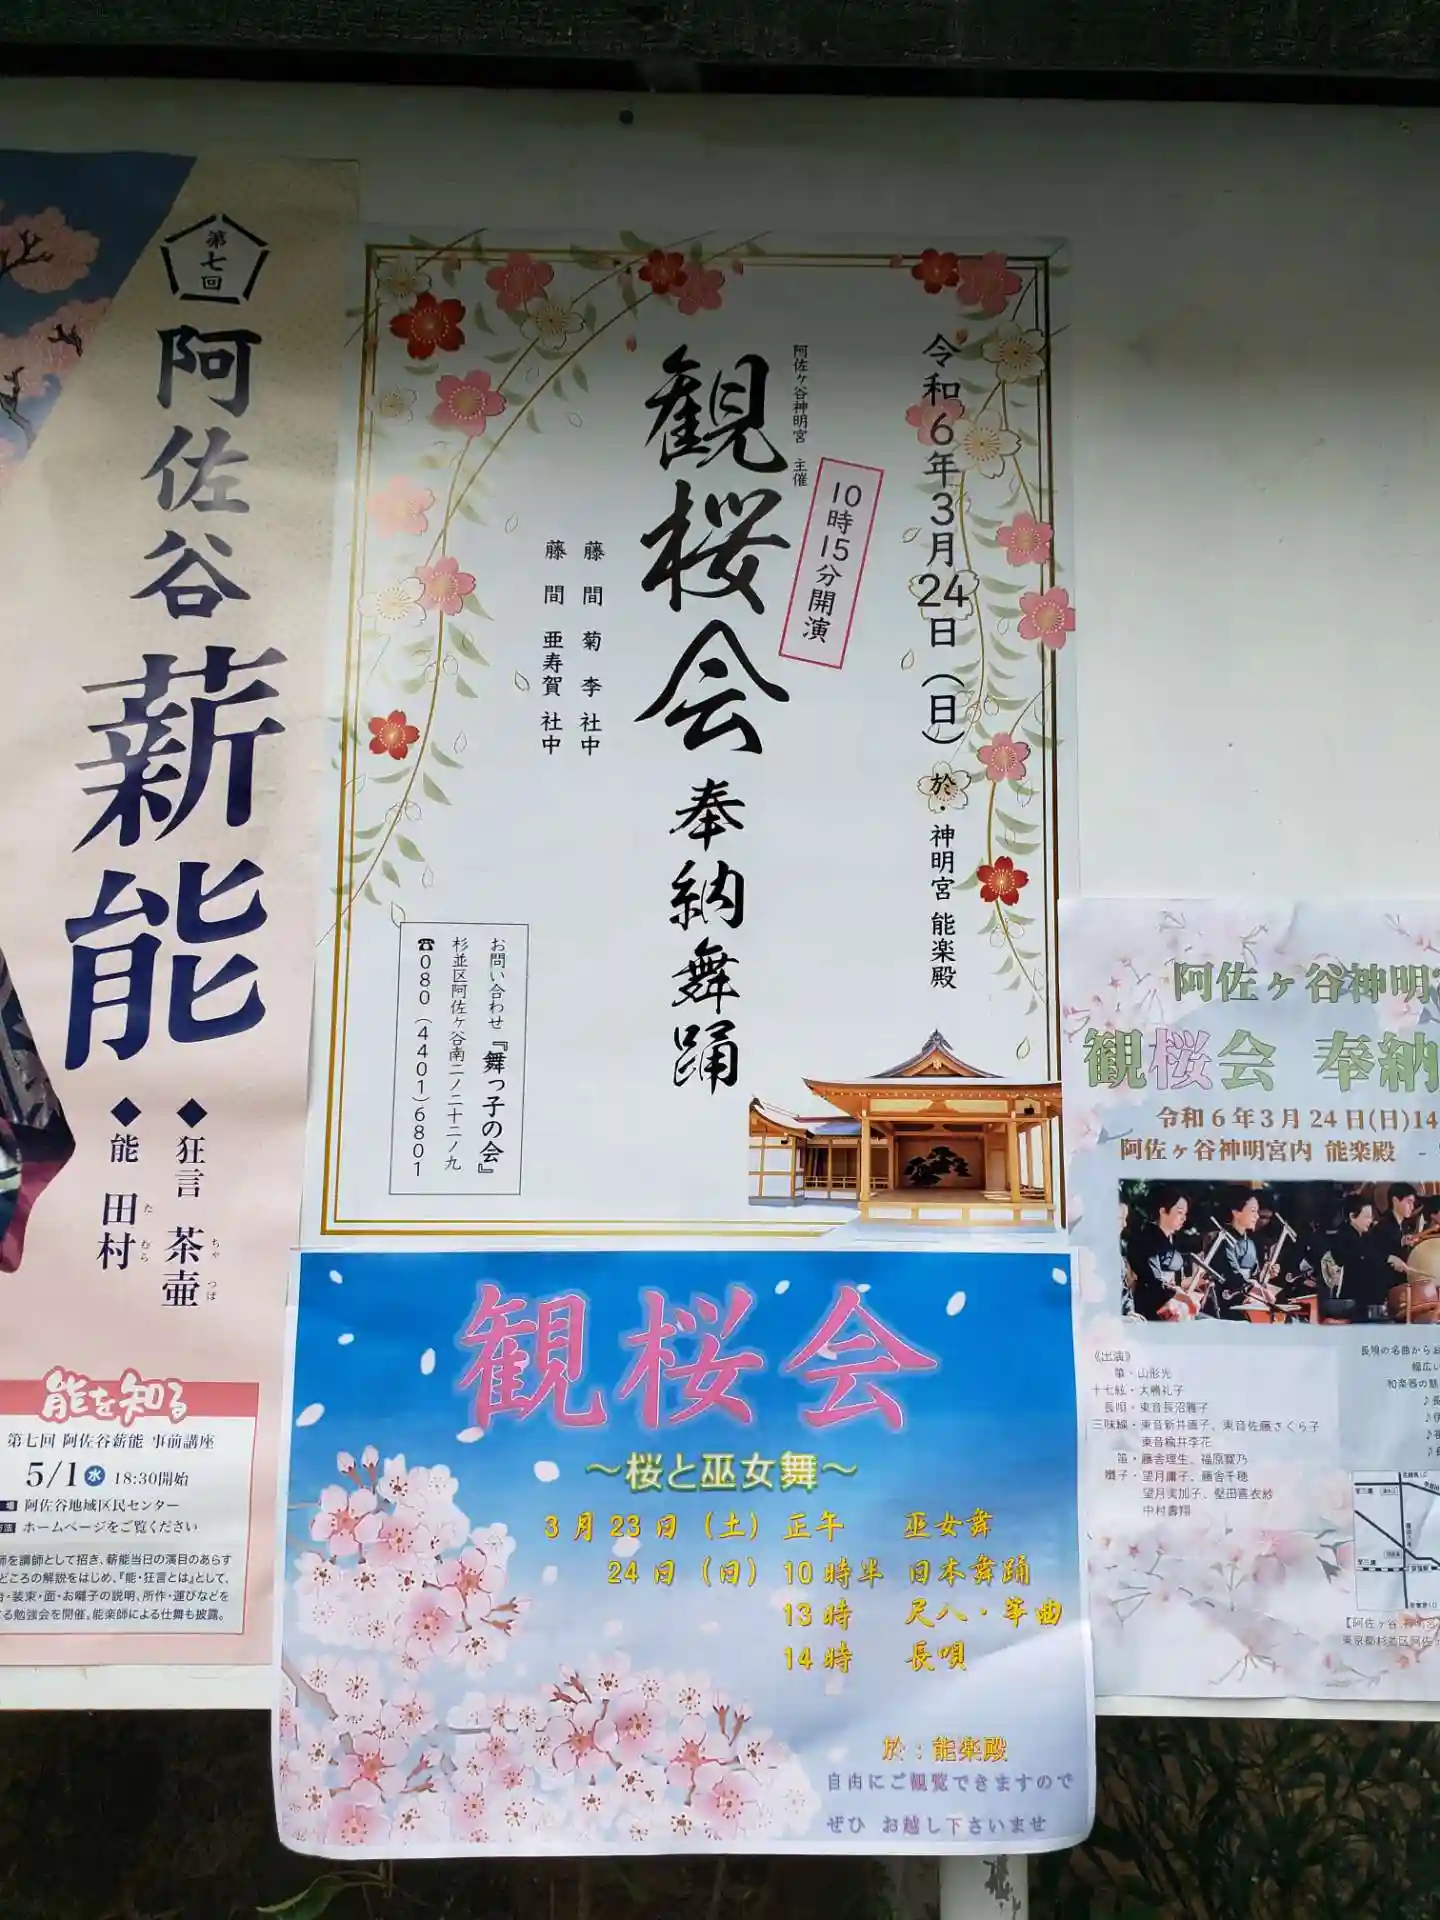 第七回
阿佐谷薪能
◆狂言 茶壷
ちゃ つぼ
◆能 田村
たむら
能を知る
第七回 阿佐谷薪能 事前講座
5/1 水 18:30開始
阿佐谷地域区民センター
ホームページをご覧ください
師を講師として招き、薪能当日の演目のあらす
どころの解説をはじめ、『能・狂言とは』として、
台・装束・面・お囃子の説明、所作・運びなどを
る勉強会を開催。能楽師による仕舞も披露。
令和6年3月24日(日) 於・神明宮 能楽殿
10時15分開演
阿佐ヶ谷神明宮 主催
観桜会 奉納舞踊
藤間 菊李 社中
藤間 亜寿賀 社中
お問い合わせ『舞っ子の会』
杉並区阿佐ヶ谷南二ノ二十二ノ九
☎080(4401)6801
観桜会
～桜と巫女舞～
3月23日(土) 正午 巫女舞
24日(日) 10時半 日本舞踊
13時 尺八・箏曲
14時 長唄
於:能楽殿
自由にご観覧できますので
ぜひ お越し下さいませ
阿佐ヶ谷神明
観桜会 奉納
令和6年3月24日(日)14
阿佐ヶ谷神明宮内 能楽殿 -
《出演》
箏・山形光
十七絃・大嶋礼子
長唄・東音長沼雅子
三味線・東音新井康子、東音佐藤さくら子
東音楡井李花
笛・藤舎理生、福原寛乃
囃子・望月庸子、藤舎千穂
望月実加子、堅田喜衣紗
中村壽翔
長唄の名曲からお
幅広い
和楽器の魅
【阿佐ヶ谷 神明宮
東京都杉並区阿佐